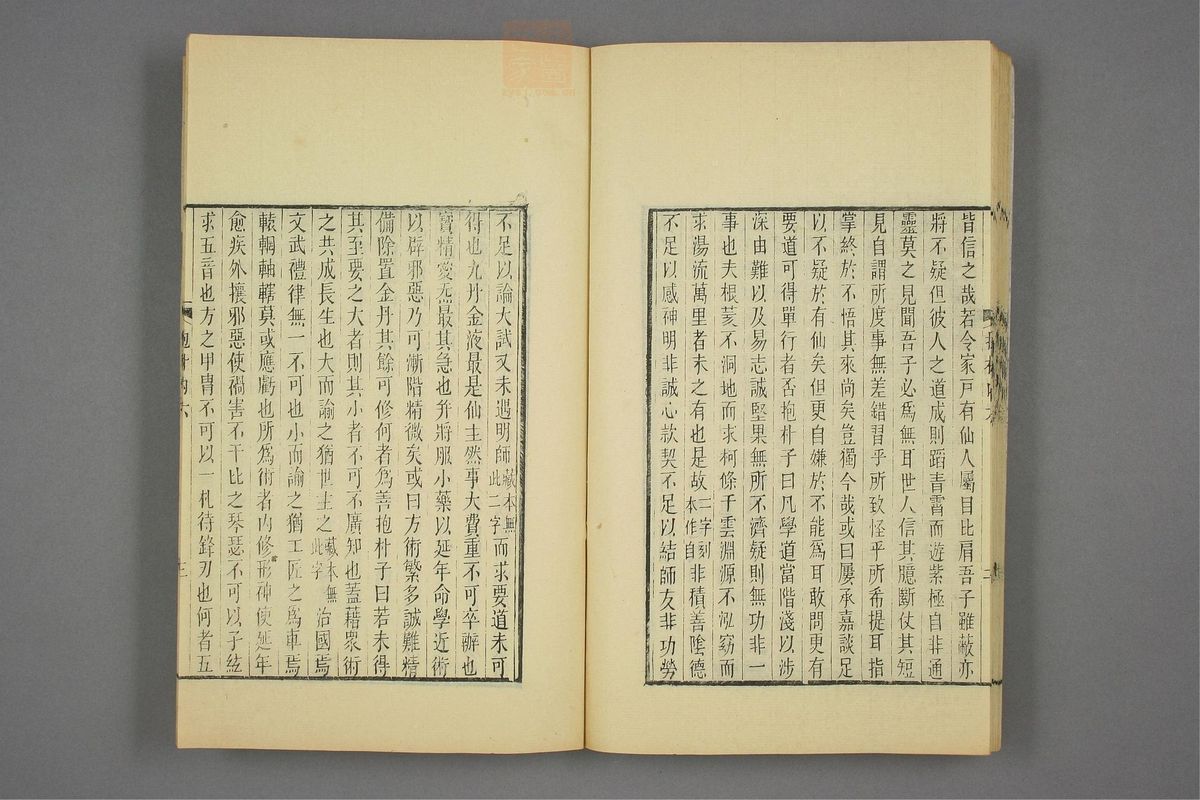 皆信之哉若令家戸有仙人屬目比肩吾子雖蔽亦
將不疑但彼人之道成則蹈青霄而遊紫極自非通
靈莫之見聞吾子必爲無耳世人信其臆斷仗其短
見自謂所度事無差錯習乎所致怪乎所希提耳指
掌終於不悟其來尚矣豈獨今哉或曰屢承嘉談足
以不疑於有仙矣但更自嫌於不能爲耳敢問更有
要道可得單行者否抱朴子曰凡學道當階淺以涉
深由難以及易志誠堅果無所不濟疑則無功非一
事也夫根荄不洞地而求柯條干雲淵源不泓窈而
求湯流萬里者未之有也是故二字刻本作自非積善陰德
不足以感神明非誠心款契不足以結師友非功勞
不足以論大試又未遇明師藏本無此二字而求要道未可
得也九丹金液最是仙主然事大費重不可卒辦也
寶精愛炁最其急也并將服小藥以延年命學近術
以辟邪惡乃可漸階精微矣或曰方術繁多誠難精
備除置金丹其餘可修何者爲善抱朴子曰若未得
其至要之大者則其小者不可不廣知也蓋藉衆術
之共成長生也大而諭之猶世主之藏本無此字治國焉
文武禮律無一不可也小而諭之猶工匠之爲車焉
轅輞軸轄莫或應虧也所爲術者内修形神使延年
愈疾外攘邪惡使禍害不干比之琴瑟不可以孑絃
求五音也方之甲冑不可以一札待鋒刃也何者五
抱朴内六
三